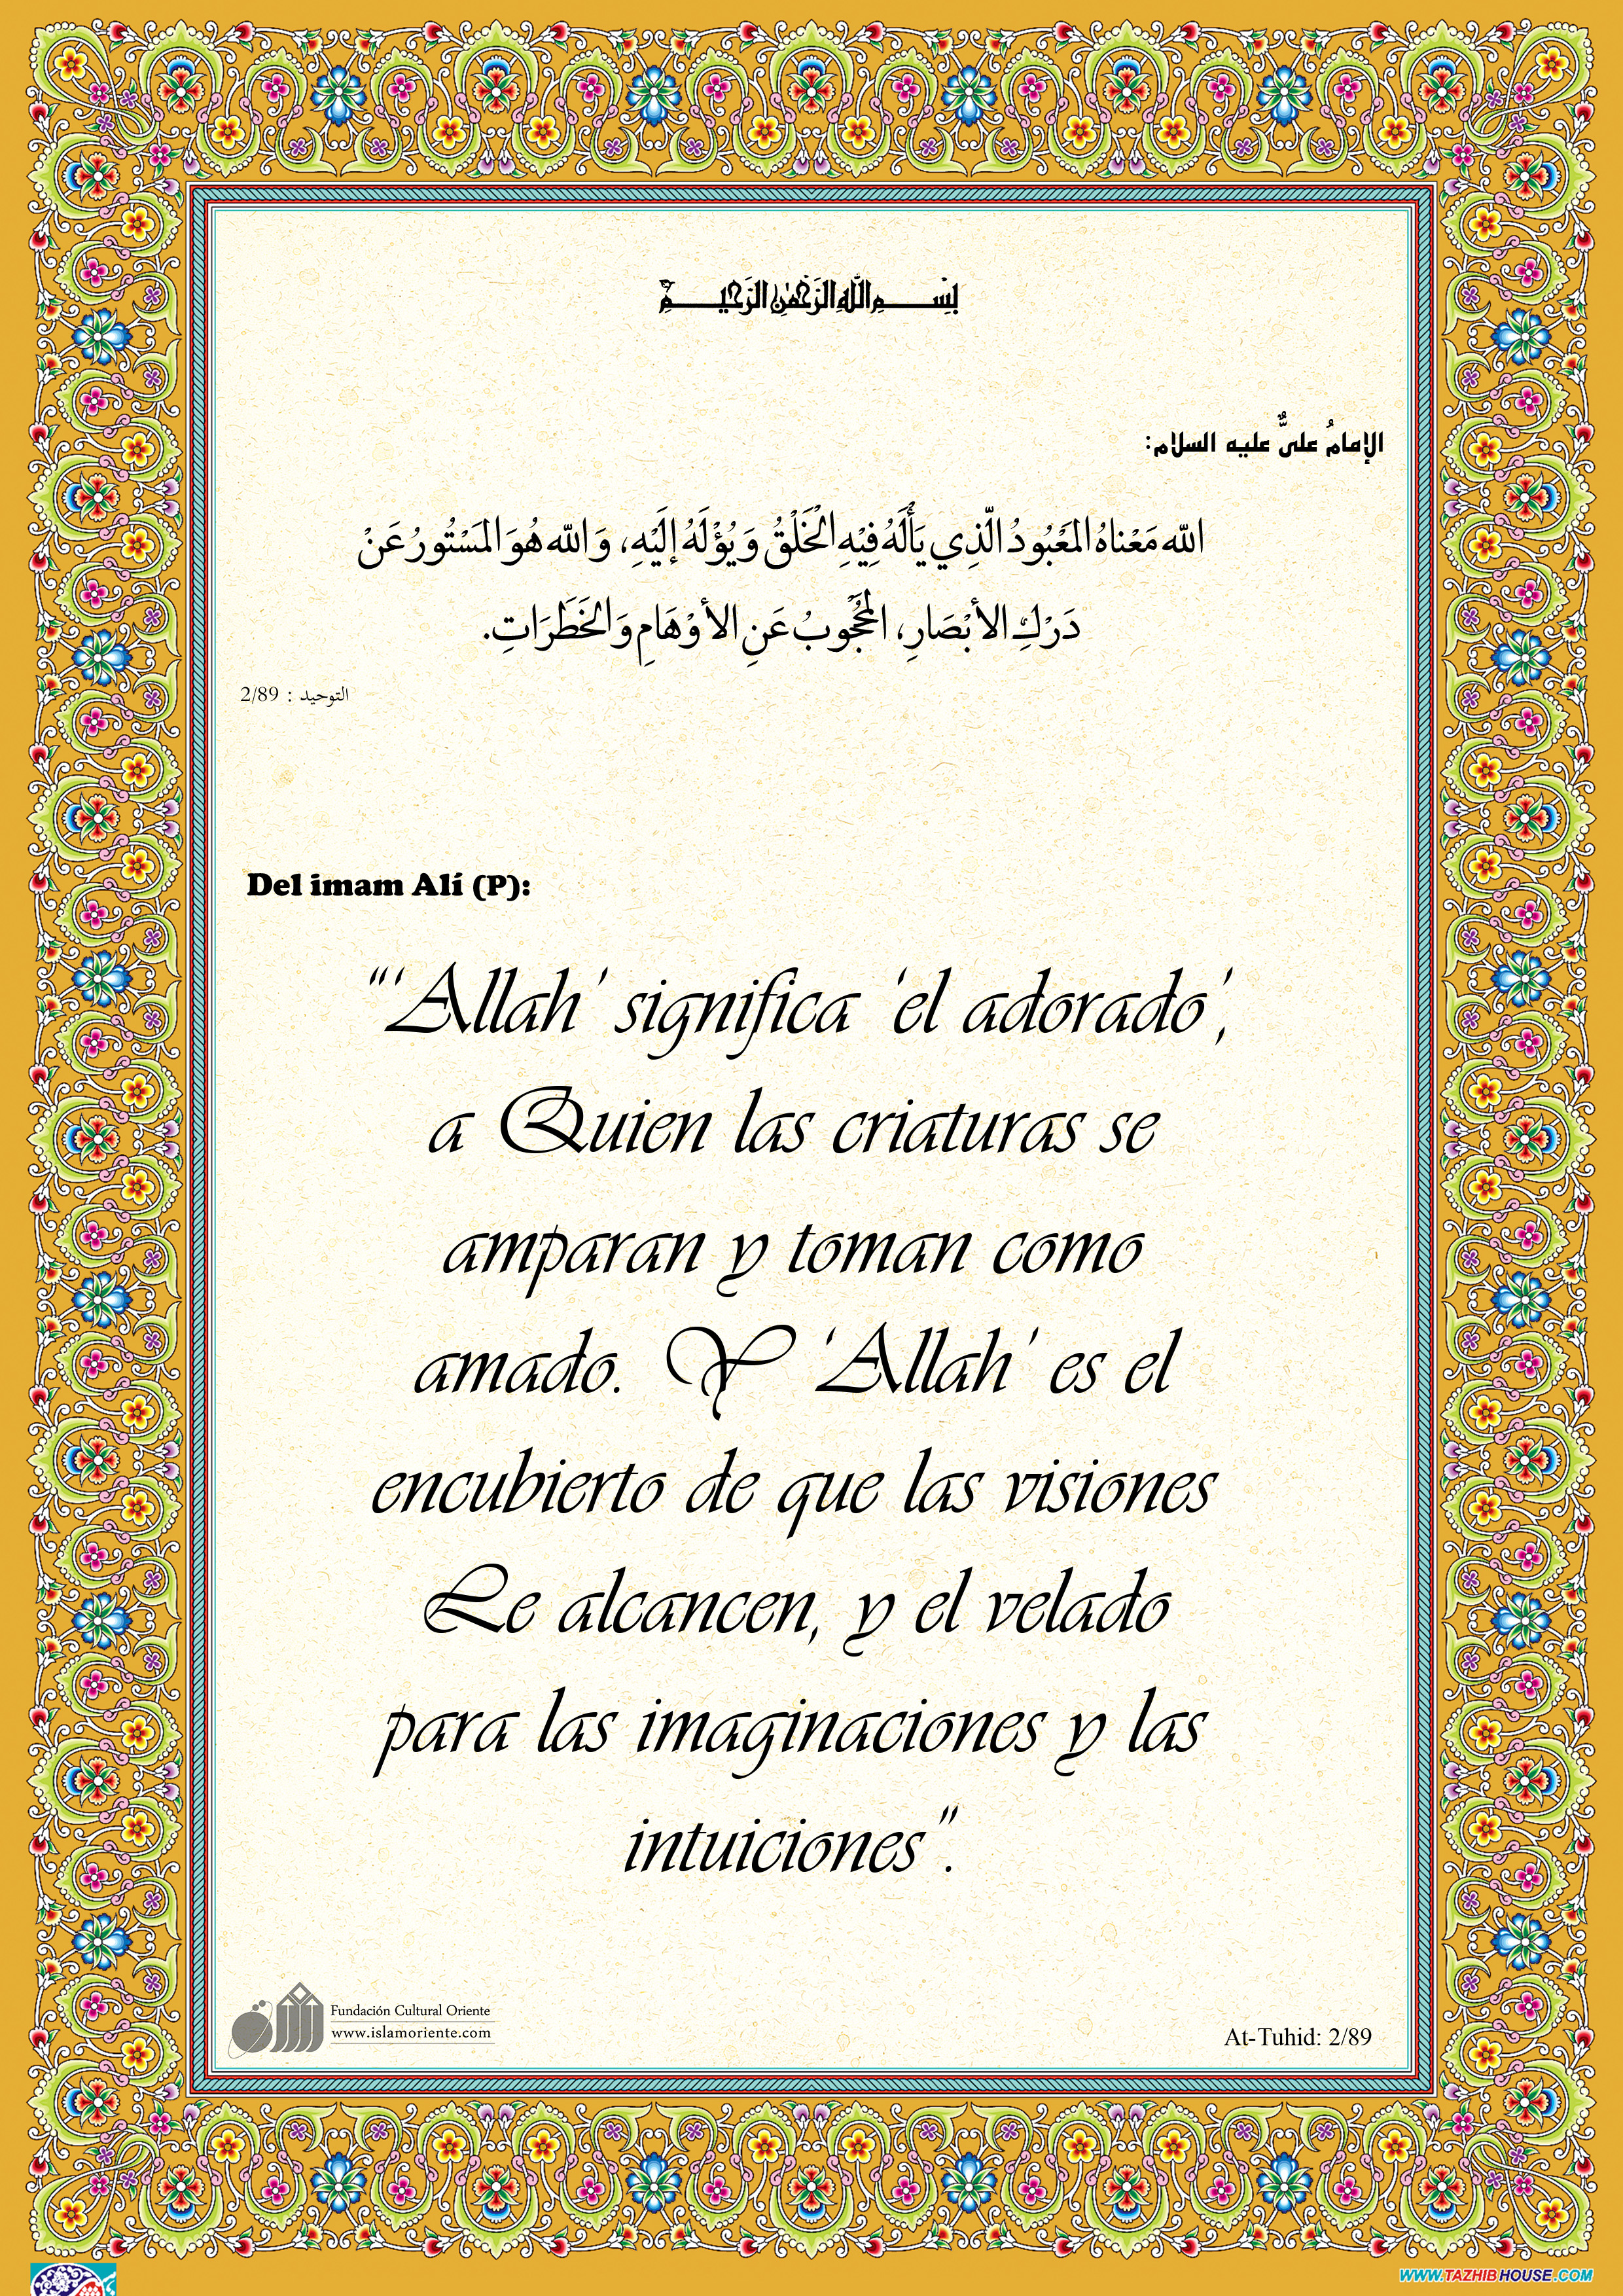 بِسْــــمِ اللَّهِ الرَّحْمٰنِ الرَّحِيـــمِ
الإمامُ علىٌّ عليه السلام:
اللّه مَعْناهُ المَعْبُودُ الَّذِي يَأْلَهُ فِيْهِ الْخَلْقُ وَيُؤْلَهُ إلَيْهِ، وَاللّه هُوَ المَسْتُورُ عَنْ
دَرْكِ الأبْصَارِ، المَحْجُوبُ عَنِ الأوْهَامِ وَالخَطَرَاتِ.
التوحيد : 2/89
Del imam Alí (P):
“‘Allah’ significa ‘el adorado’,
a Quien las criaturas se
amparan y toman como
amado. Y ‘Allah’ es el
encubierto de que las visiones
Le alcancen, y el velado
para las imaginaciones y las
intuiciones”.
Fundación Cultural Oriente
www.islamoriente.com
At-Tuhid: 2/89
WWW.TAZHIBHOUSE.COM